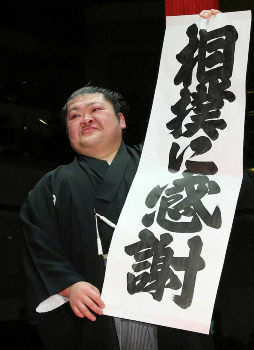 相撲に感謝